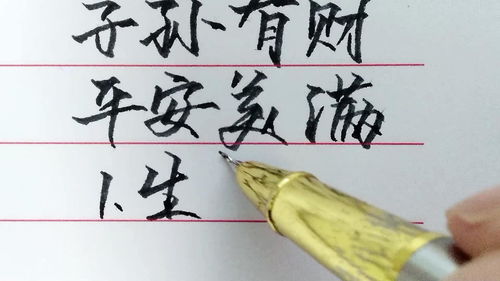 子孙有财
平安美满
卜生